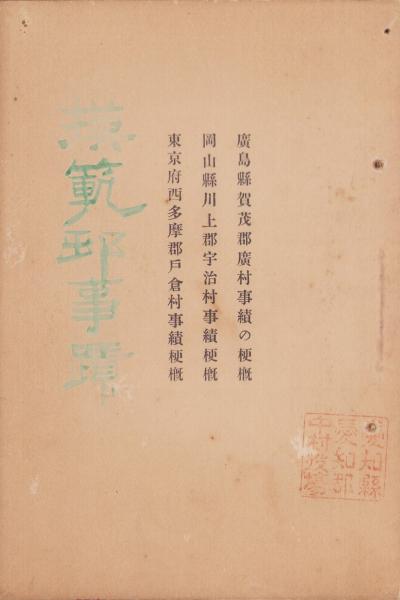 廣島縣賀茂郡廣村事績の梗概
岡山縣川上郡宇治村事績梗概
東京府西多摩郡戸倉村事績梗概
模範邨事蹟
愛知縣
愛知郡
中村役場